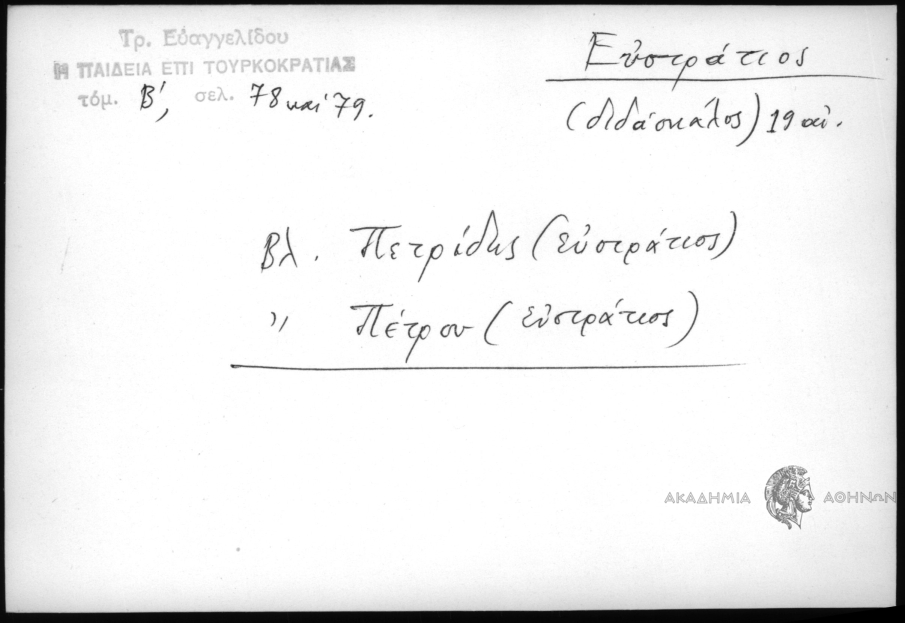 Τρ. Εὐαγγελίδου
Η ΠΑΙΔΕΙΑ ΕΠΙ ΤΟΥΡΚΟΚΡΑΤΙΑΣ
τόμ. Β', σελ. 78 και 79.
Εὐστράτιος
(διδάσκαλος) 19 αἰ.
Βλ. Πετρίδης (εὐστράτιος)
" Πέτρου (εὐστράτιος)
ΑΚΑΔΗΜΙΑ ΑΘΗΝΩΝ